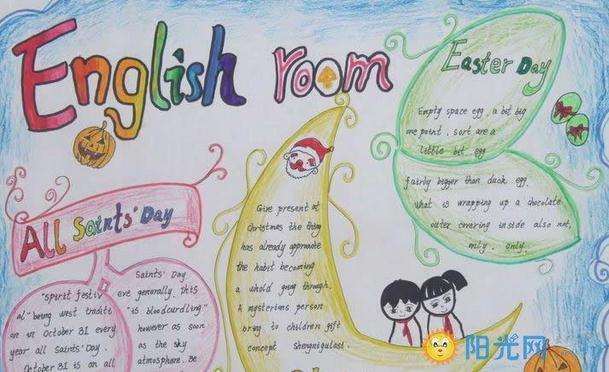 English room
Easter Day
Empty space egg, a bit big
me point, sort are a
little bit egg
fairly bigger than duck egg.
What is wrapping up a chocolate
outer covering inside also not,
mity. only.
Give present at
Christmas the thing
has already appromate
the habit becoming
a whold going through.
A mysterious person
bring to children gift
concept Shengnigulasi.
All Saints' Day
"spirit festiv
al" being west traditi
on in October 31 every
year all Saints' Day.
October 31 is on all
Saints' Day
eve generally. This
"is bloodcurdling"
however as soon
as the sky
atmosphere. Be
阳光网